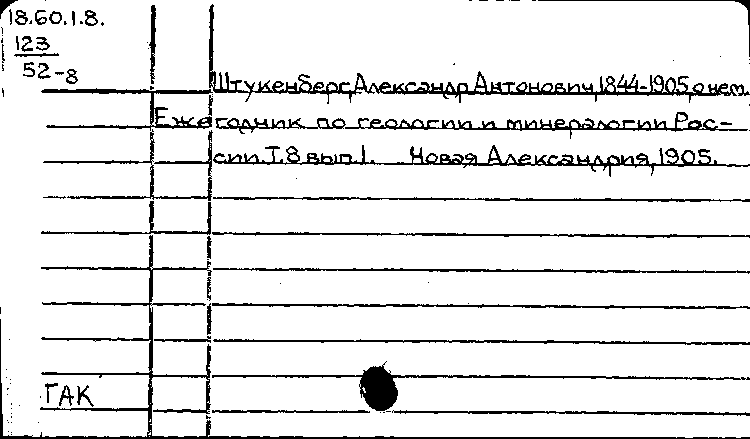 18.60.1.8.
123
52-8
Штукенберг, Александр Антонович, 1844-1905, о нем.
Ежегодник по геологии и минералогии Рос-
сии. Т. 8 вып. 1. Новая Александрия, 1905.
ГАК